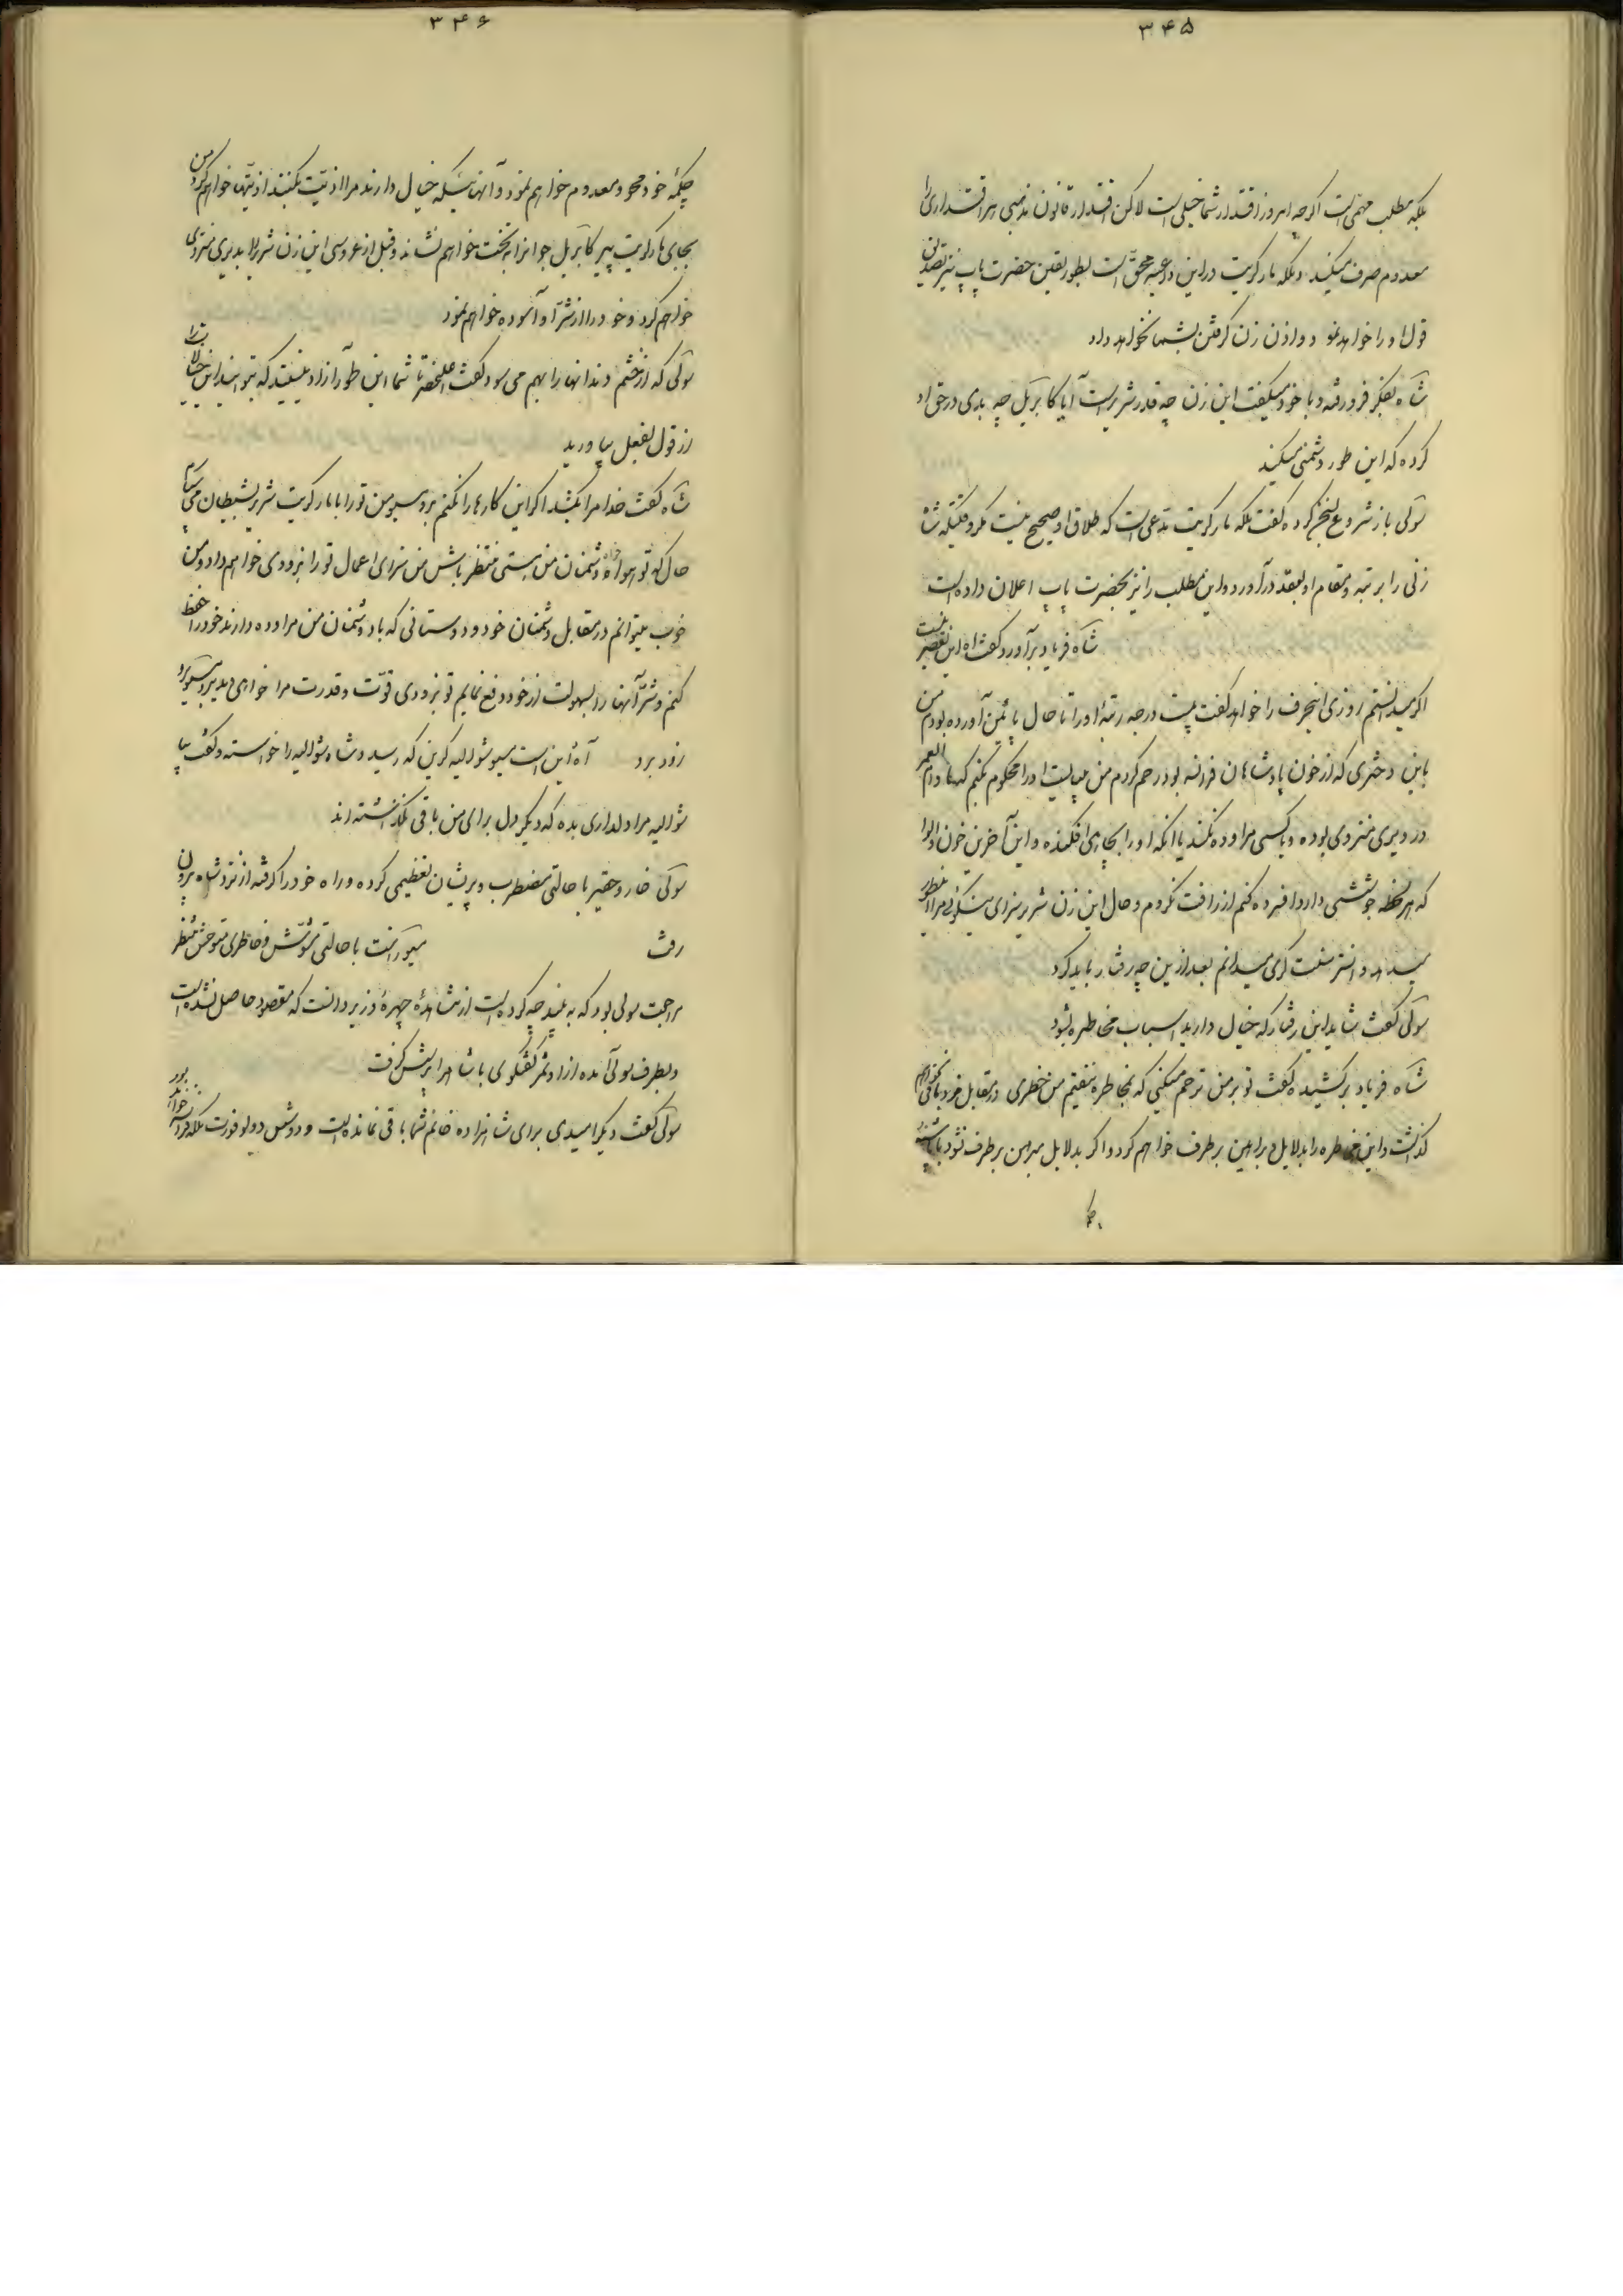 ۳۴۵
بلکه مطلب مهمی است اگرچه امروز اقتدار شما خیلی است لاکن اقتدار قانون مذهبی هر اقتداری را
معدوم صرف میکند و ملکه مارگریت در این داعیه محقّ است بطور یقین حضرت پاپ نیز تصدیق
قول او را خواهد نمود و اذن زن گرفتن بشما نخواهد داد
شاه بفکر فرو رفته و با خود میگفت این زن چه قدر شریر است آیا کابریل چه بدی در حق او
کرده که این طور دشمنی میکند
سولی باز شروع بسخن کرده گفت ملکه مارگریت مدّعی است که طلاق او صحیح نیست مگر وقتیکه شاه
زنی را برتبه و مقام او بعقد درآورد و این مطلب را نیز بحضرت پاپ اعلان داده است
شاه فریاد برآورد گفت آه این تقصیر نیست
اگر میدانستم روزی این حرف را خواهد گفت بیست درجه رتبهٔ او را تا حال پائین آورده بودم من
باین دختری که از خون پادشاهان فرانسه بود رحم کردم من میبایست او را محکوم بکنم که مادام العمر
در دیری منزوی بوده و با کسی مراوده نکند یا آنکه او را بچاهی افکنده و این آخرین خون والوا
که هر لحظه جوششی دارد افسرده کنم از رافت نکردم و حال این زن شریر سزای نیکوئی مرا اینطور
میدهد و انتر سنت گری میدانم بعد از این چه رفتار باید کرد
سولی گفت شاید این رفتار که خیال دارید اسباب مخاطره بشود
شاه فریاد برکشیده گفت تو بر من ترحم میکنی که بمخاطره نیفتم من خطری در مقابل خود باقی نخواهم
گذاشت و این مخاطره را بدلایل و براهین برطرف خواهم کرد و اگر بدلایل و براهین برطرف نشود با پاشنه
۳۴۶
چکمهٔ خود محو و معدوم خواهم نمود و آنهائیکه خیال دارند مرا اذیّت بکنند اذیتها خواهم کرد من
بجای مارگریت پیر کابریل جوانرا به تخت خواهم نشاند و قبل از عروسی این زن شریر را بدیری منزوی
خواهم کرد و خود را از شرّ او آسوده خواهم نمود
سولی که از خشم دندانها را بهم می سود گفت اعلیحضرتا شما این طور آزاد نیستید که بتوانید این خیالات را
از قول بفعل بیاورید
شاه گفت خدا مرا بکشد اگر این کارها را نکنم برو مسیو من تو را با مارگریت شریر بشیطان می سپارم
حال که تو هواخواه دشمنان من هستی منتظر باش من سزای اعمال تو را بزودی خواهم داد و من
خوب میتوانم در مقابل دشمنان خود و دوستانی که با دشمنان من مراوده دارند خود را حفظ
کنم و شرّ آنها را بسهولت از خود دفع نمایم تو بزودی قوّت و قدرت مرا خواهی دید برو مسیو برو
زود برو آه این است مسیو شوالیه کرین که رسید و شاه شوالیه را خواسته و گفت بیا
شوالیه مرا دلداری بده که دیگر دل برای من باقی نگذاشته اند
سولی خار و حقیر با حالتی مضطرب و پریشان تعظیمی کرده و راه خود را گرفته از نزد شاه بیرون
رفت میورنت با حالتی مشوّش و خاطری متوحش منتظر
مراجعت سولی بود که به بیند چه کرده است از مشاهدهٔ چهرهٔ وزیر دانست که مقصود حاصل نشده است
و بطرف سولی آمده از او ثمر گفتگوی با شاه را پرسش گرفت
سولی گفت دیگر امیدی برای شاهزاده خانم شما باقی نمانده است و دوشس دو بوفورت ملکه فرانسه خواهد بود